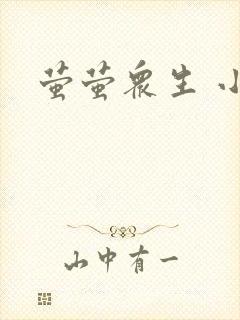 萤萤众生 小
山中有一